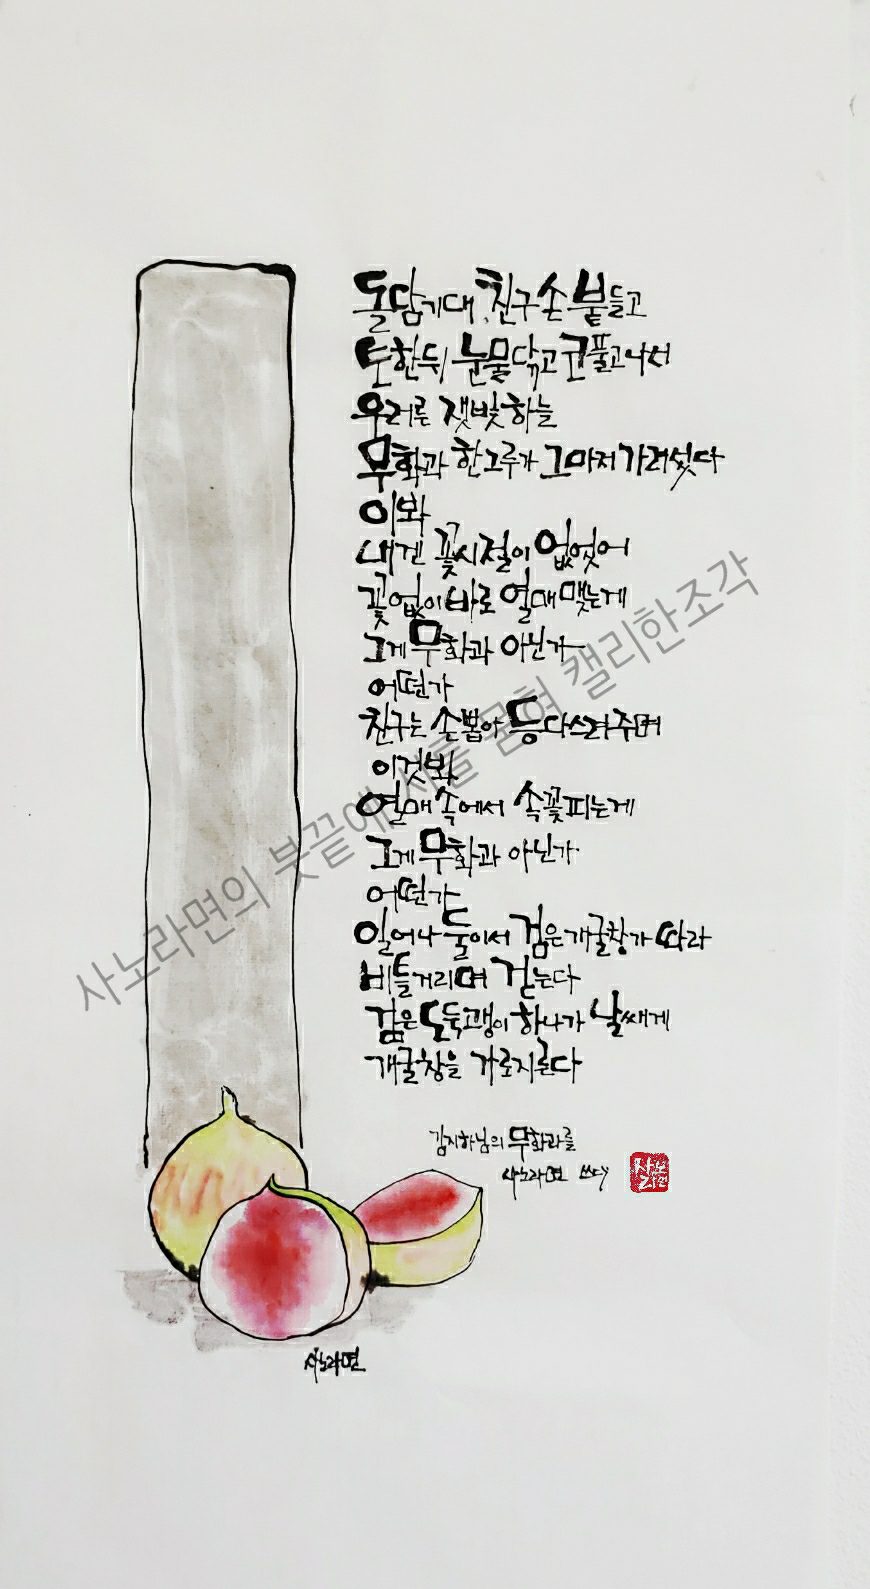 돌담기대 친구 손 붙들고
토한뒤 눈물닦고 코풀고나서
우러른 잿빛하늘
무화과 한그루가 그마저 가려섰다
이봐
내겐 꽃시절이 없었어
꽃없이 바로 열매맺는게
그게 무화과 아닌가
어떤가
친구는 손뽑아 등다스려주며
이것봐
열매 속에서 속꽃피는게
그게 무화과 아닌가
어떤가
일어나 둘이서 검은개굴창가 따라
비틀거리며 걷는다
검은 도둑괭이 하나가 날쌔게
개굴창을 가로지른다
김지하님의 무화과를
사노라면 쓰다
사노라면
사노라면
사노라면의 붓끝에 시를 묻혀 캘리한조각